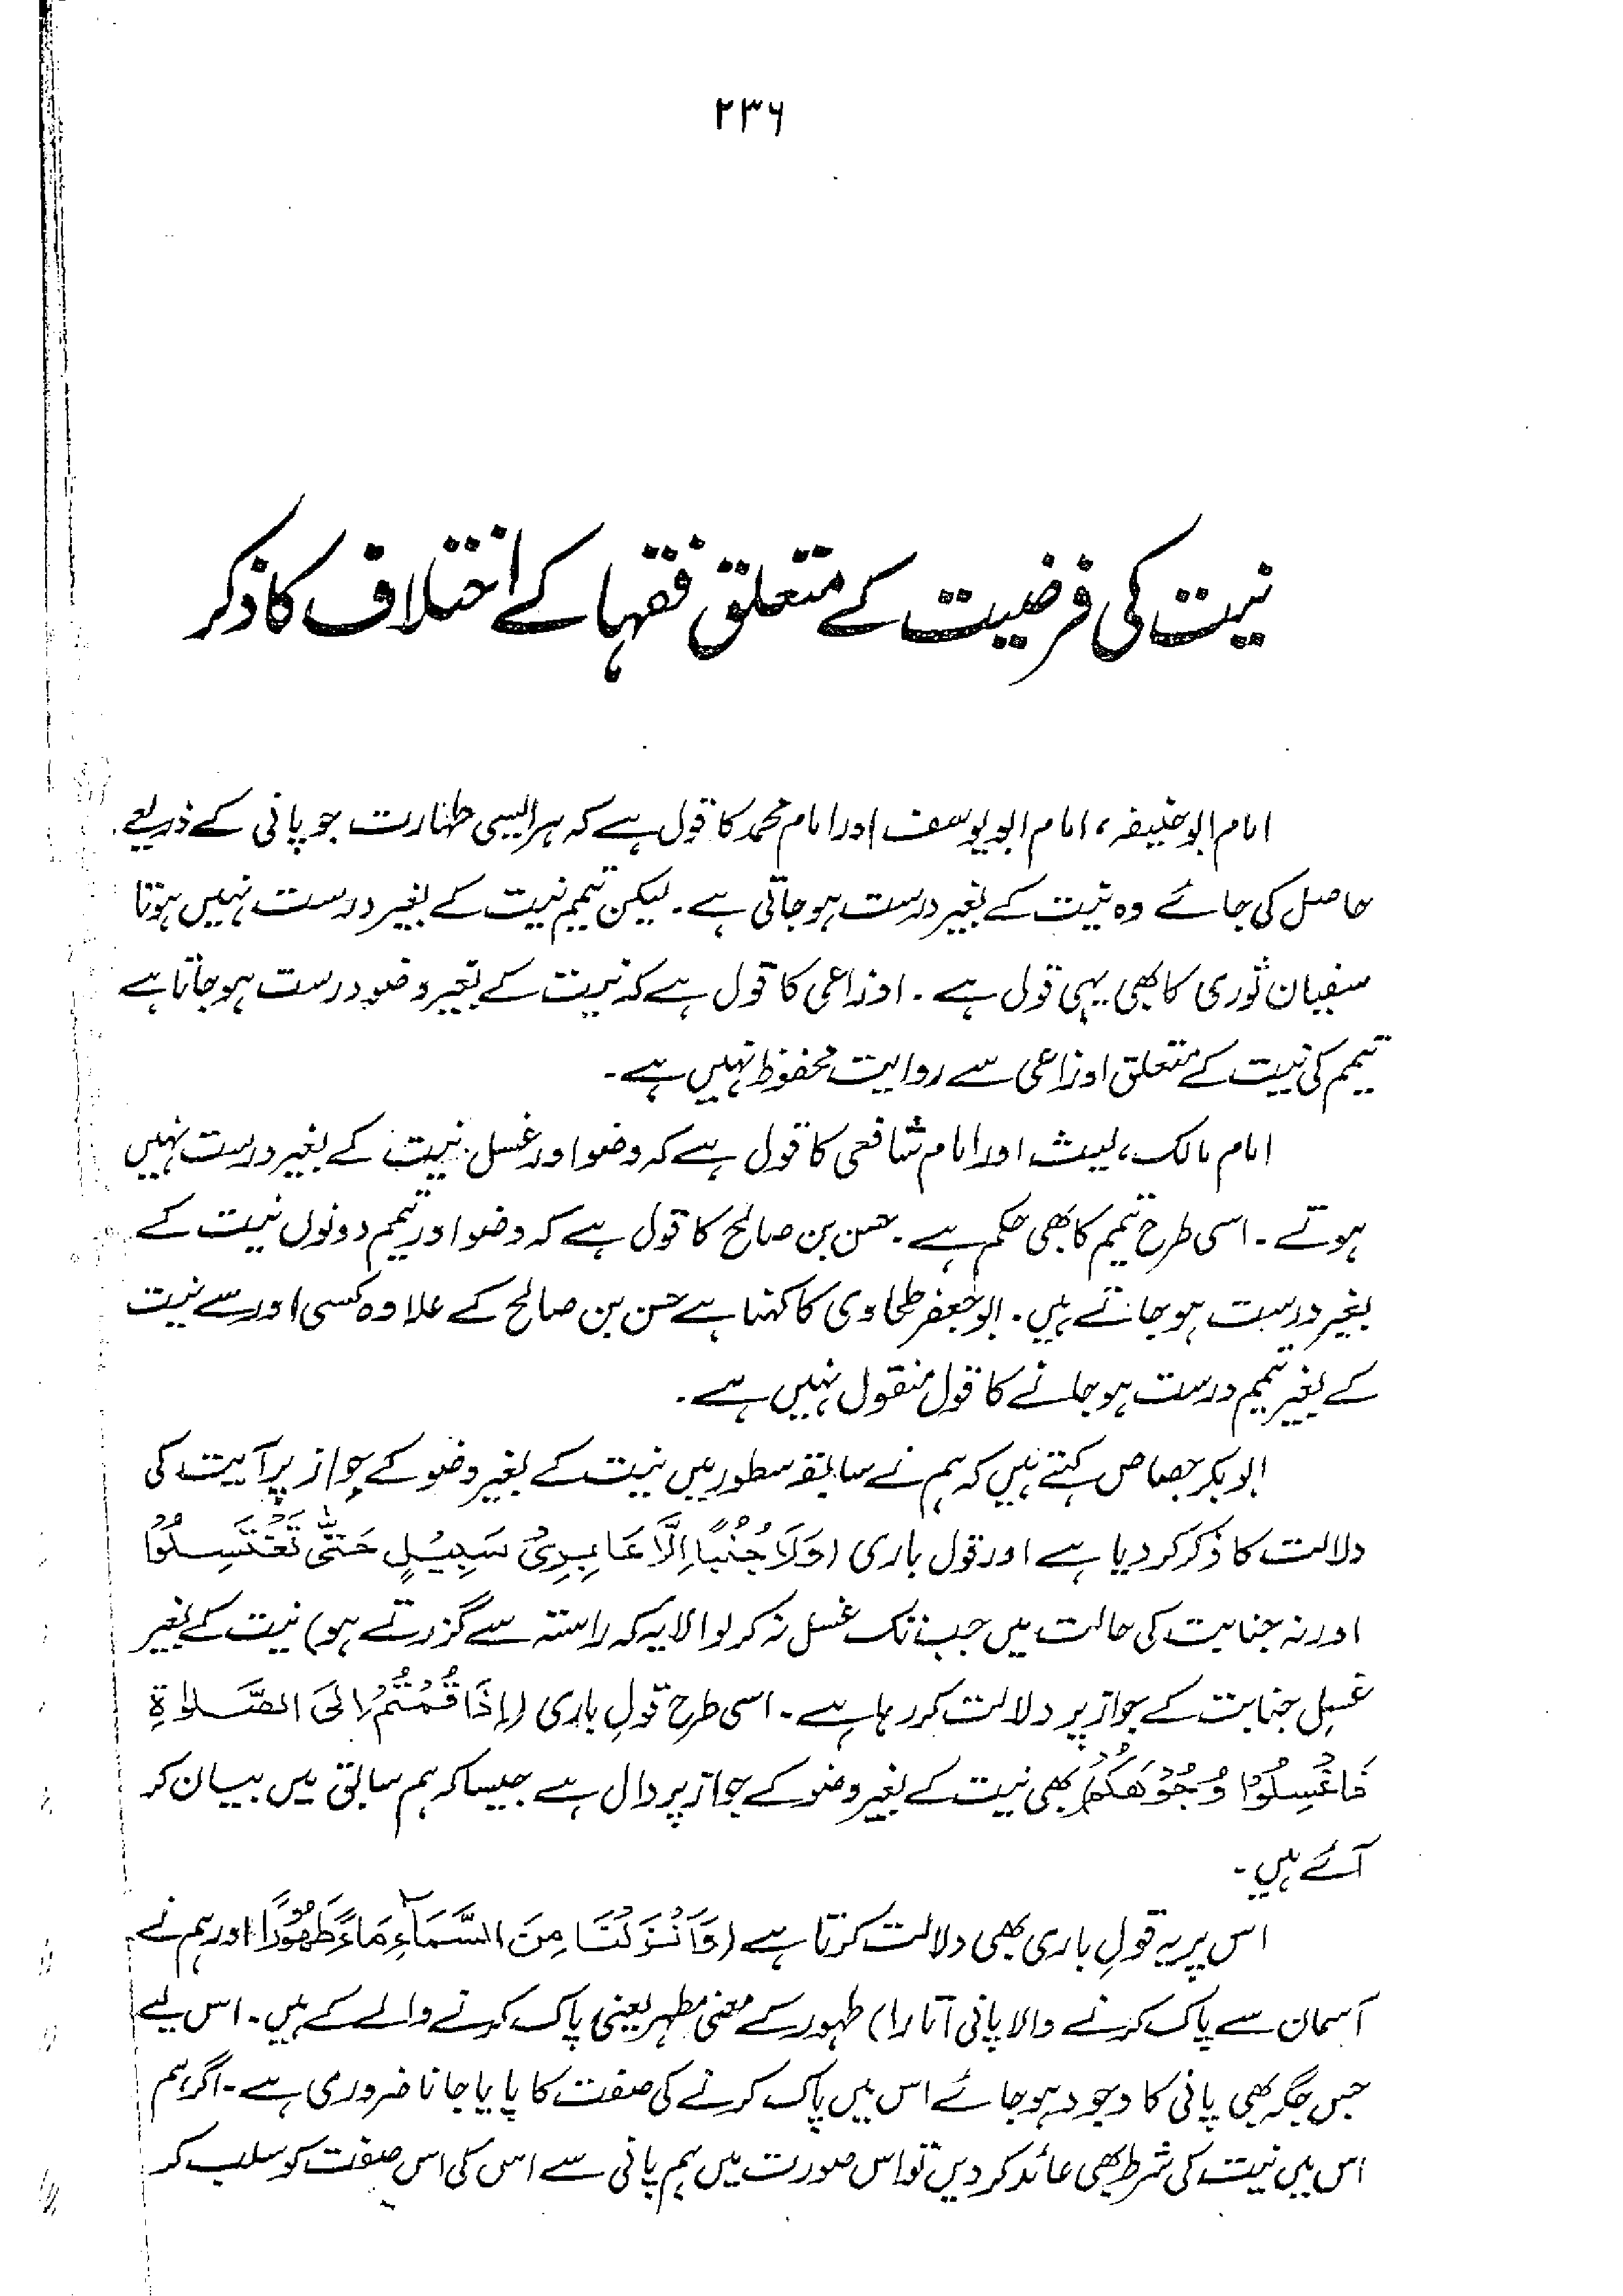 ۲۳۶
نیت کی فرضیت کے متعلق فقہا کے اختلاف کا ذکر
امام ابو حنیفہ، امام ابو یوسف اور امام محمد کا قول ہے کہ ہر ایسی طہارت جو پانی کے ذریعے
حاصل کی جائے وہ نیت کے بغیر درست ہو جاتی ہے۔ لیکن تیمم نیت کے بغیر درست نہیں ہوتا
سفیان ثوری کا بھی یہی قول ہے۔ اوزاعی کا قول ہے کہ نیت کے بغیر وضو درست ہو جاتا ہے
تیمم کی نیت کے متعلق اوزاعی سے روایت محفوظ نہیں ہے۔
امام مالک، لیث اور امام شافعی کا قول ہے کہ وضو اور غسل نیت کے بغیر درست نہیں
ہوتے۔ اسی طرح تیمم کا بھی حکم ہے۔ حسن بن صالح کا قول ہے کہ وضو اور تیمم دونوں نیت کے
بغیر درست ہو جاتے ہیں۔ ابو جعفر طحاوی کا کہنا ہے حسن بن صالح کے علاوہ کسی اور سے نیت
کے بغیر تیمم درست ہو جانے کا قول منقول نہیں ہے۔
ابو بکر جصاص کہتے ہیں کہ ہم نے سابقہ سطور میں نیت کے بغیر وضو کے جواز پر آیت کی
دلالت کا ذکر کر دیا ہے اور قول باری (وَلَا جُنُبًا اِلَّا عَابِرِیْ سَبِیْلٍ حَتّٰی تَغْتَسِلُوْا
اور نہ جنابت کی حالت میں جب تک غسل نہ کر لو الا یہ کہ راستہ سے گزرتے ہو) نیت کے بغیر
غسلِ جنابت کے جواز پر دلالت کر رہا ہے۔ اسی طرح قولِ باری (اِذَا قُمْتُمْ اِلَی الصَّلٰوةِ
فَاغْسِلُوْا وُجُوْهَكُمْ) بھی نیت کے بغیر وضو کے جواز پر دال ہے جیسا کہ ہم سابق میں بیان کر
آئے ہیں۔
اس پر یہ قولِ باری بھی دلالت کرتا ہے (وَاَنْزَلْنَا مِنَ السَّمَآءِ مَاءً طَهُوْرًا اور ہم نے
آسمان سے پاک کرنے والا پانی اتارا) طہور کے معنی مطہر یعنی پاک کرنے والے کے ہیں۔ اس لیے
جس جگہ بھی پانی کا وجود ہو جائے اس میں پاک کرنے کی صفت کا پایا جانا ضروری ہے۔ اگر ہم
اس میں نیت کی شرط بھی عائد کر دیں تو اس صورت میں ہم پانی سے اس کی اس صفت کو سلب کر